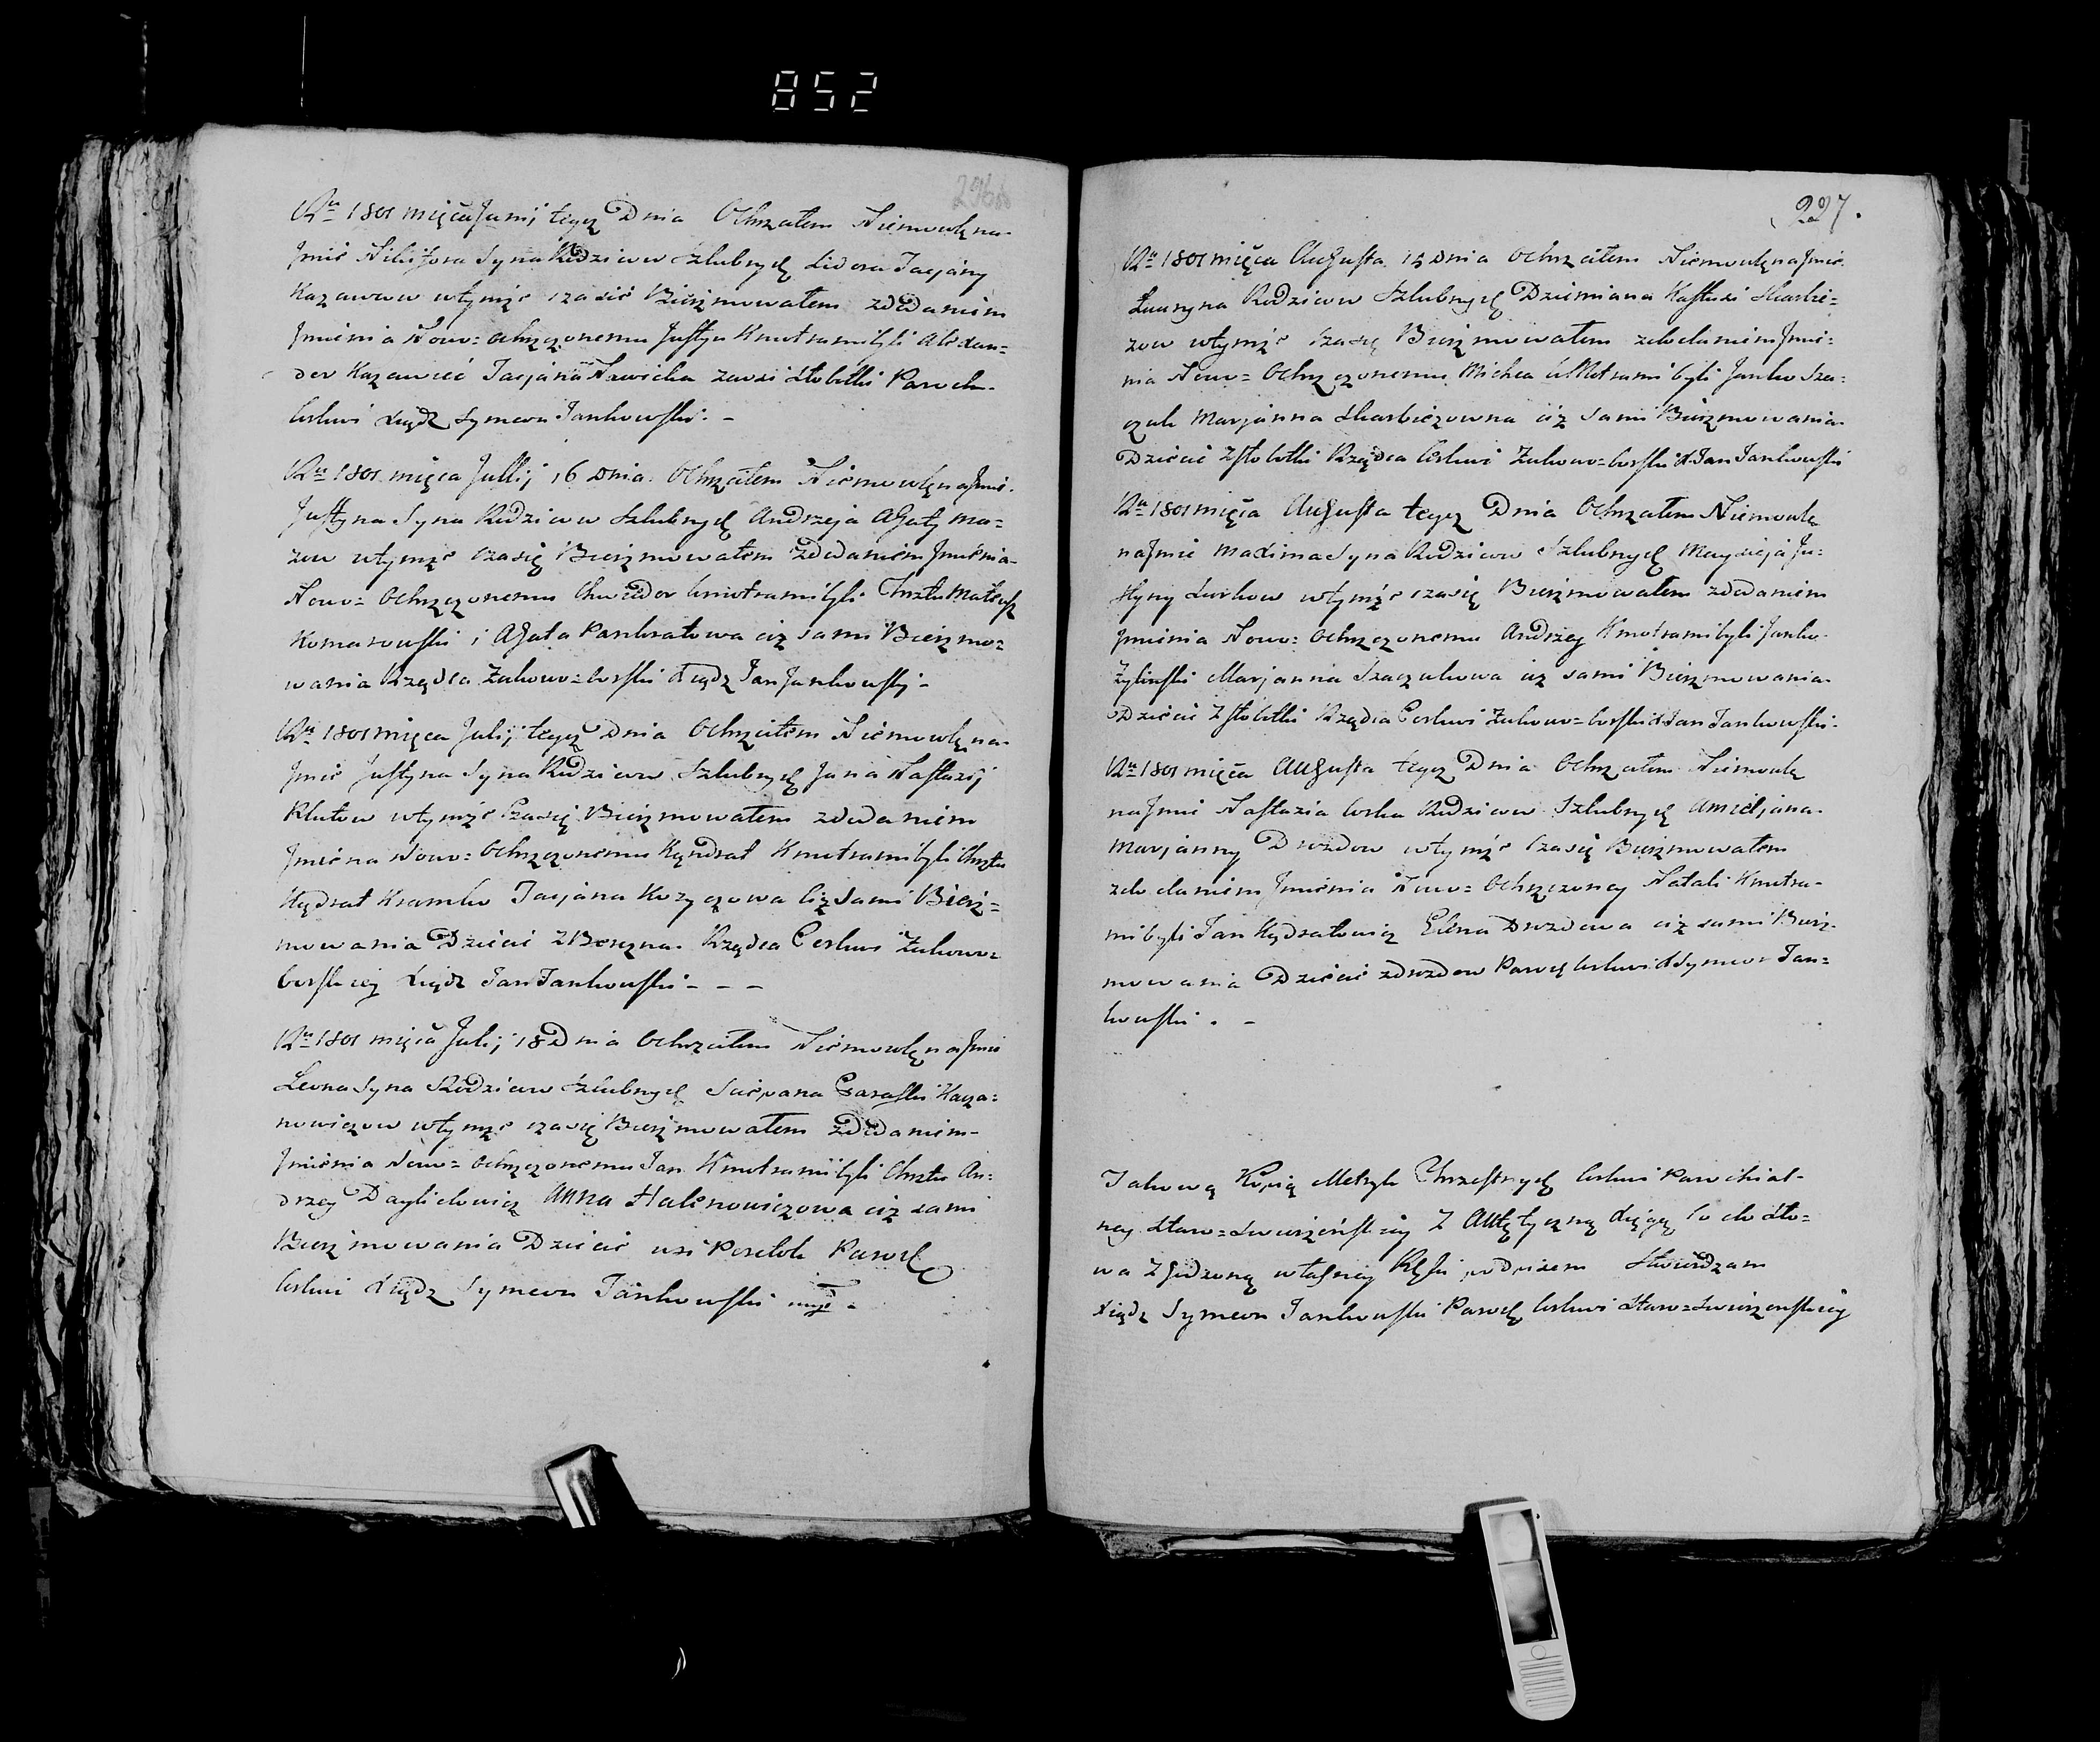 852
Rku 1801 mięca Junij tegoż Dnia Ochrzciłem Niemowlę na
Jmie Nikifora Syna Rodziców Szlubnych Sidora Tacjany
Kazawow wtymże czasie Bierzmowałem zdodaniem
Jmienia Nowo=Ochrzczonemu Justyn Kmotrami byli Alexan=
der Kazawieć Tacjana zwsi Stołbki Paroch
Cerkwi Xiądz Symeon Jankowski. -
Rku 1801 mięca Julij 16 Dnia Ochrzciłem Niemowlę na Jmie
Justyna Syna Rodziców Szlubnych Andrzeja Agaty Ma=
zow wtymże czasie Bierzmowałem zdodaniem Jmienia
Nowo=Ochrzczonemu Chwiedor kmotrami byli Chrztu Mateusz
Komarowski i Agata Pankratowa ciż sami Bierzmo=
wania Rządca Żukowo=borski Xiądz Jan Jankowski -
Rku 1801 mięca Julij tegoż Dnia Ochrzciłem Niemowlę na
Jmie Justyna Syna Rodziców Szlubnych Jana Nastazij
Klutow wtymże Czasie Bierzmowałem zdodaniem
Jmiena Nowo=Ochrzczonemu Kąndrat Kmotrami byli Chrztu
Kądrat Kramko Tacjana Kozyczowa Ciż sami Bierz=
mowania Dziecie z Berezna Rządca Cerkwi Żukowo=
borskiej Xiądz Jan Jankowski - - -
Rku 1801 mięca Julij 18 Dnia Ochrzciłem Niemowlę na Jmie
Leona Syna Rodziców Szlubnych Sciepana Paraski Kacza=
nowiczow wtymże czasie Bierzmowałem zdodaniem
Jmienia Nowo=Ochrzczonemu Jan Kmotrami byli Chrztu An=
drzey Daylidowicz Anna Halenowiczowa ciż sami
Bierzmowania Dziecie wsi Posiołek Paroch
Cerkwi Xiądz Symeon Jankowski mp -
227.
Rku 1801 mięca Augusta 15 Dnia Ochrzciłem Niemowlę na Jmie
Ławryna Rodziców Szlubnych Dziemiana Nastazi Skarbie=
zow wtymże czasie Bierzmowałem zdodaniem Jmie=
nia Nowo=Ochrzczonemu Michca kMotrami byli Janko Sza=
czuk Marjanna Skarbiezowna ciż sami Bierzmowania
Dziecie z Stołbki Rządca Cerkwi Żukowo=borski X Jan Jankowski
Rku 1801 mięca Augusta tegoż Dnia Ochrzciłem Niemowle
na Jmie Maxima Syna Rodziców Szlubnych Maycieja Ju=
styny Lwikow wtymże czasie Bierzmowałem zdodaniem
Jmienia Nowo=Ochrzczonemu Andrzey Kmotrami byli Janko
Żyliński Marjanna Szaczukowa ciż sami Bierzmowania
Dziecie z Stołbki Rządca Cerkwi Żukowo=borski X Jan Jankowski.
Rku 1801 mięca Augusta tegoż Dnia Ochrzciłem Niemowle
na Jmie Nastazia Corka Rodziców Szlubnych Amieljana
Marjanny Drozdow wtymże Czasie Bierzmowałem
zdodaniem Jmienia Nowo=Ochrzczoney Natali Kmotra=
mi byli Jan Kądratowicz Elena Drozdowa ciż sami Bierz=
mowania Dziecie z drozdow Paroch Cerkwi X Symeon Jan=
kowski. -
Takową Kopią Metryk Chrzestnych Cerkwi Parochial=
ney Staro=Swierżeńskiey z Autętyczną Xięgą Co do Sło=
wa Zgodzoną własney Ręki podpisem Stwierdzam
Xiądz Symeon Jankowski Paroch Cerkwi Staro=Swierzenskiey